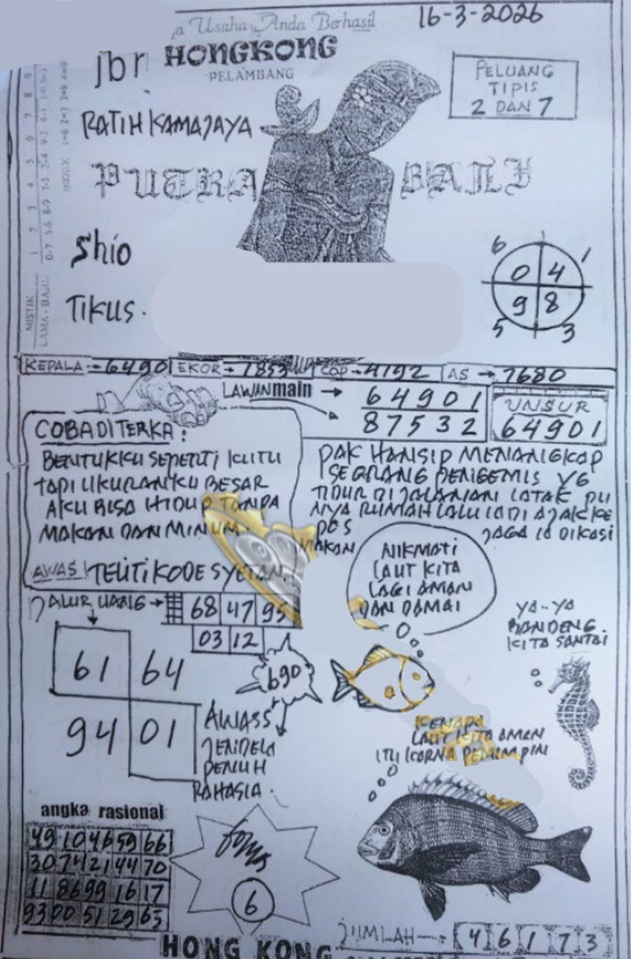 Usaha Anda Berhasil
16-3-2026
jbr HONGKONG
PELAMBANG
PELUANG
TIPIS
2 DAN 7
RATIH KAMAJAYA
PUTRA BALI
Shio
Tikus.
6 1
0 4
9 8
5 3
KEPALA 64901 EKOR 1853 COP 4192 AS 7680
LAWAN main
64901
87532
UNSUR
64901
COBA DITERKA:
BENTUKKU SEPERTI KUTU
TAPI UKURANKU BESAR
AKU BISA HIDUP TANPA
MAKAN DAN MINUM
AWAS! TELITI KODE SYETAN.
PAK HANSIP MENANGKAP
SEORANG PENGEMIS YG
TIDUR DI JALANAN
NYA RUMAH LALU IA DI AJAK KE
POS
MAKAN
JAGA IA DIKASI
NIKMATI
LAUT KITA
LAGI AMAN
DAN DAMAI
JALUR UANG
68 47 95
03 12
61 64
94 01
690
YA-YA
BANDENG.
KITA SANTAI
AWASS
JENDELA
PENUH
RAHASIA.
KENAPA
LAUT KITA AMAN
ITU KARNA PEMIMPIN
angka rasional
49 10 46 59 66
30 74 21 44 70
11 86 99 16 17
93 00 51 29 63
6
JUMLAH 4 6 1 7 3
HONG KONG